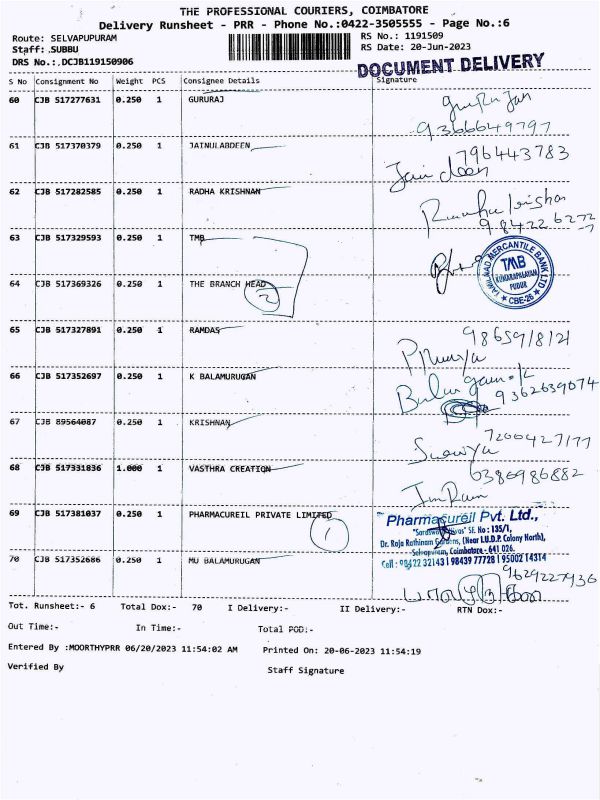 THE PROFESSIONAL COURIERS, COIMBATORE
Delivery Runsheet - PRR - Phone No.:0422-3505555 - Page No.:6
Route: SELVAPUPURAM
RS No.: 1191509
Staff: SUBBU
RS Date: 20-Jun-2023
DRS No.:.DCJB119150906
DOCUMENT DELIVERY
S No Consignment No Weight PCS Consignee Details Signature
60 CJB 517277631 0.250 1 GURURAJ
9366649797
61 CJB 517370379 0.250 1 JAINULABDEEN
796443783
Jain deen
62 CJB 517282585 0.250 1 RADHA KRISHNAN
63 CJB 517329593 0.250 1 TMB
TAMILNAD MERCANTILE BANK LTD
TMB
KUMARAPALAYAM
PUDUR
CBE-26
64 CJB 517369326 0.250 1 THE BRANCH HEAD
2
65 CJB 517327891 0.250 1 RAMDAS
66 CJB 517352697 0.250 1 K BALAMURUGAN
9362639074
67 CJB 89564087 0.250 1 KRISHNAN
7200427177
68 CJB 517331836 1.000 1 VASTHRA CREATION
6386986882
69 CJB 517381037 0.250 1 PHARMACUREIL PRIVATE LIMITED
1
Pharmacureil Pvt. Ltd.,
SF. No : 135/1,
Dr. Raja Rathinam Gardens, (Near I.U.D.P. Colony North),
Selvapuram, Coimbatore - 641 026.
Cell : 98422 32143 | 98439 77728 | 95002 14314
70 CJB 517352686 0.250 1 MU BALAMURUGAN
9629227936
Tot. Runsheet:- 6 Total Dox:- 70 I Delivery:- II Delivery:- RTN Dox:-
Out Time:- In Time:- Total POD:-
Entered By :MOORTHYPRR 06/20/2023 11:54:02 AM Printed On: 20-06-2023 11:54:19
Verified By Staff Signature